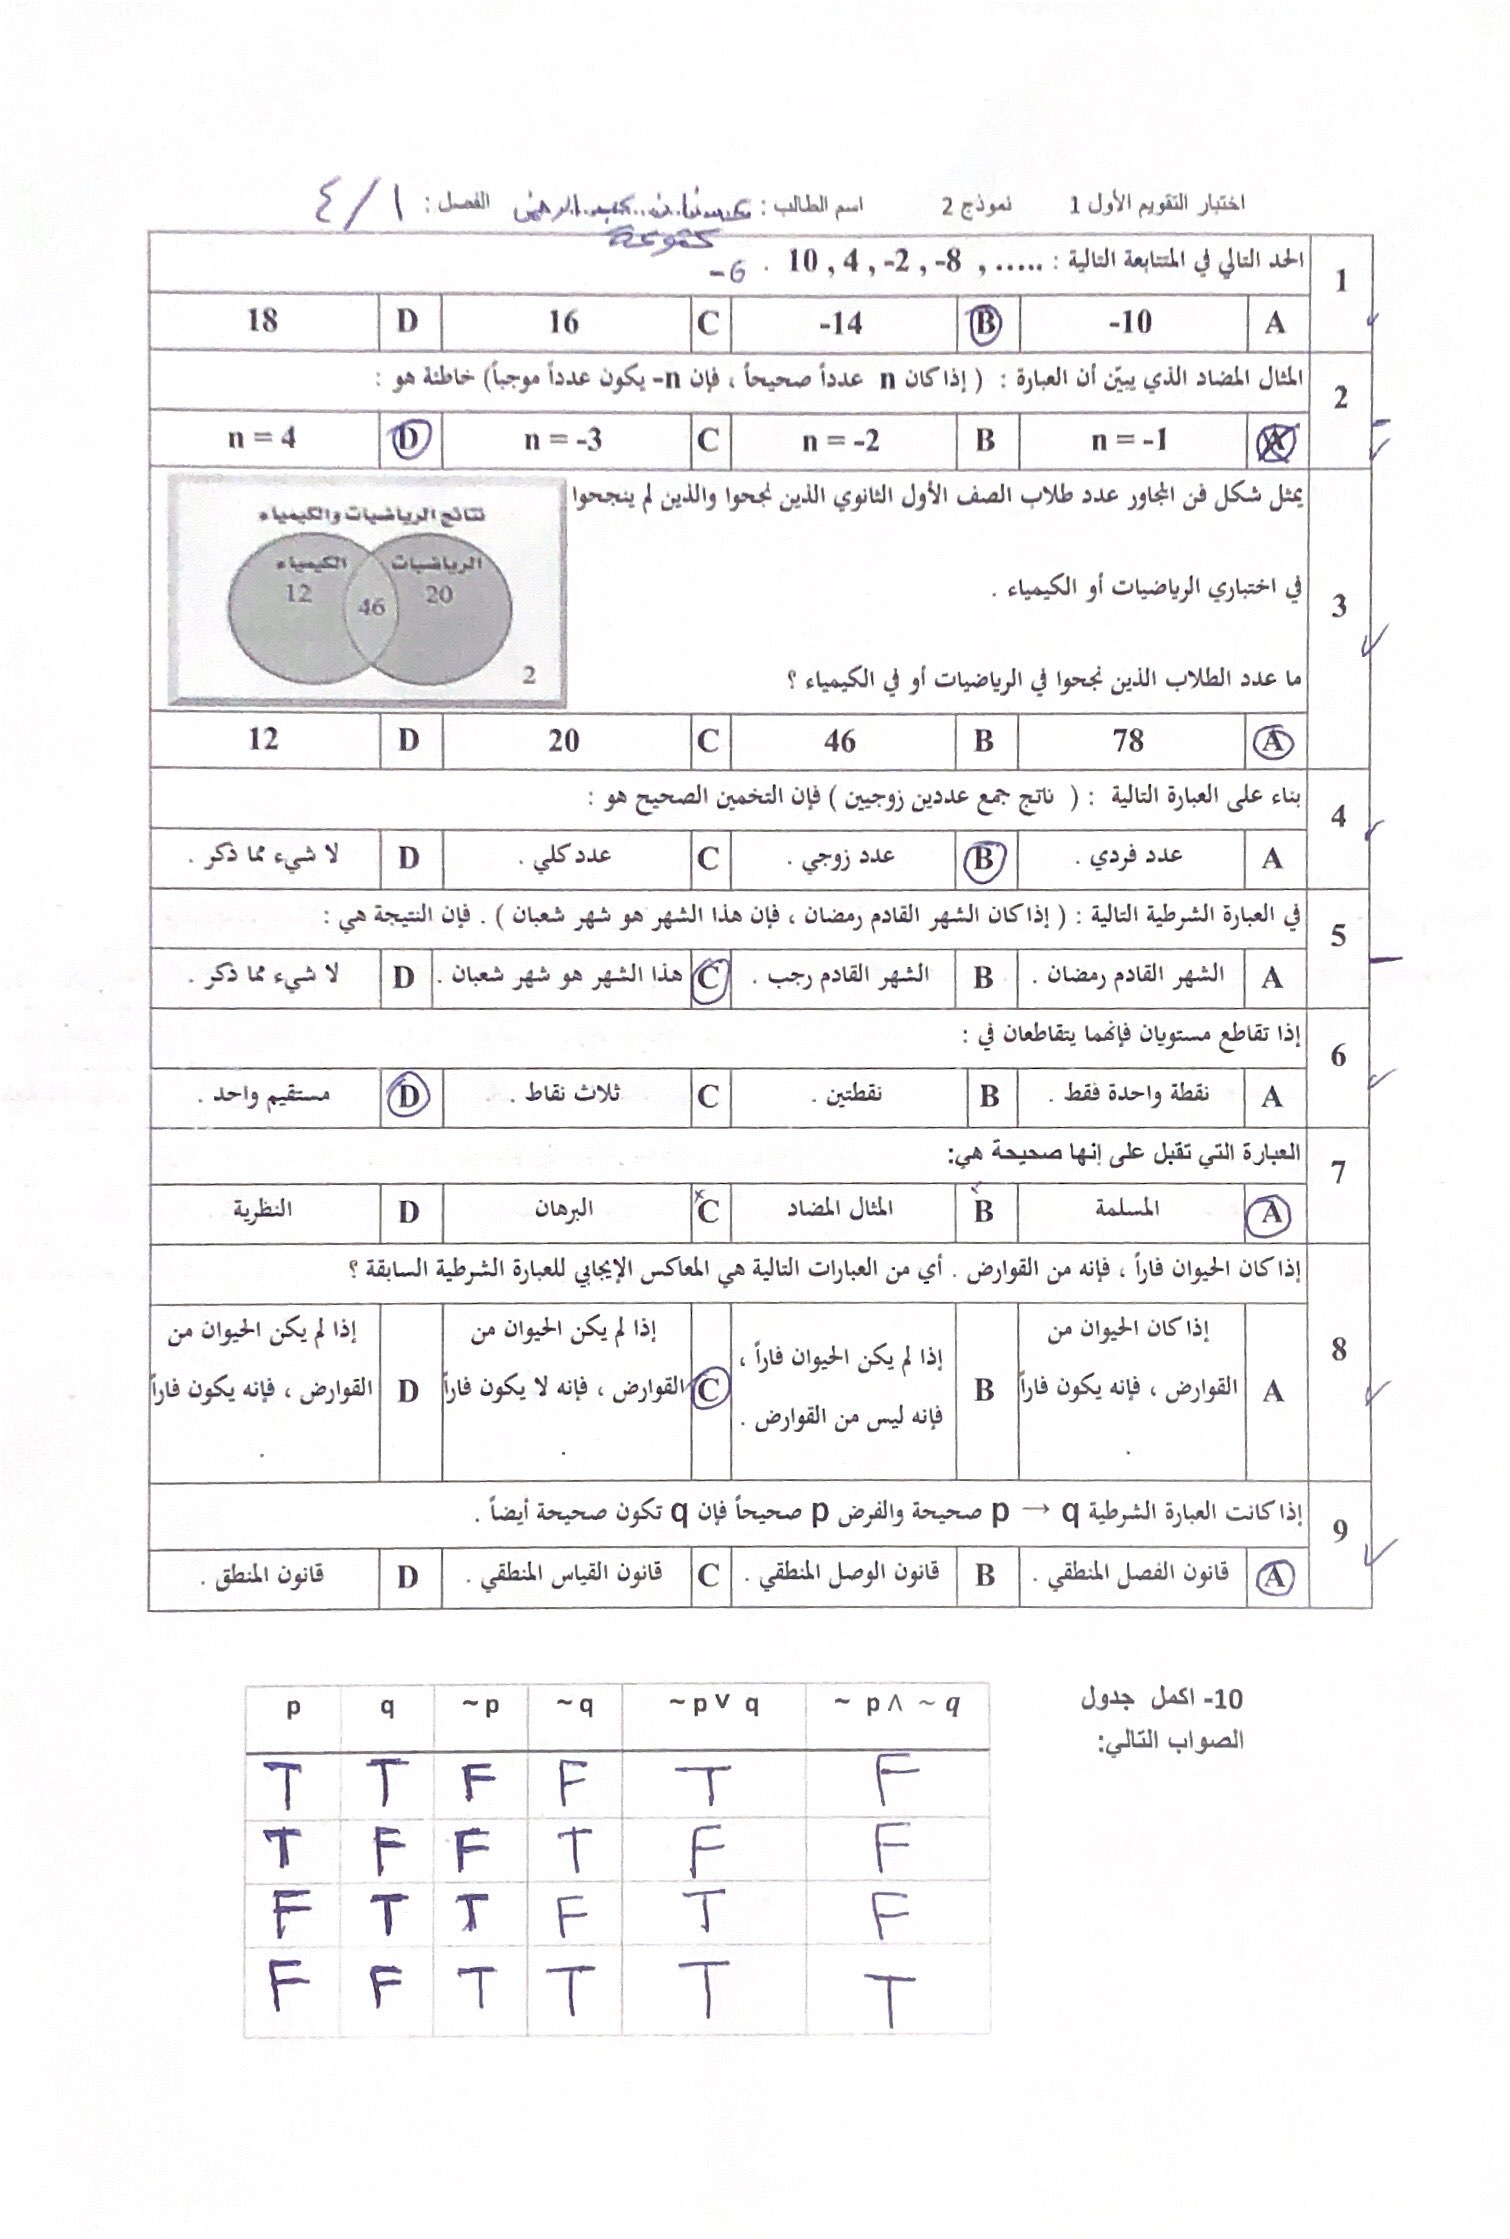 اختبار التقويم الأول 1 نموذج 2 اسم الطالب : عبد الرحمن الفصل : ٤/١
1
الحد التالي في المتتابعة التالية : 10 , 4 , -2 , -8 , ..... .
-6
A -10 B -14 C 16 D 18
2
المثال المضاد الذي يبيّن أن العبارة : ( إذا كان n عدداً صحيحاً ، فإن n- يكون عدداً موجباً) خاطئة هو :
A n = -1 B n = -2 C n = -3 D n = 4
3
يمثل شكل فن المجاور عدد طلاب الصف الأول الثانوي الذين نجحوا والذين لم ينجحوا
في اختباري الرياضيات أو الكيمياء .
ما عدد الطلاب الذين نجحوا في الرياضيات أو في الكيمياء ؟
نتائج الرياضيات والكيمياء
الرياضيات الكيمياء
20 46 12
2
A 78 B 46 C 20 D 12
4
بناء على العبارة التالية : ( ناتج جمع عددين زوجيين ) فإن التخمين الصحيح هو :
A عدد فردي . B عدد زوجي . C عدد كلي . D لا شيء مما ذكر .
5
في العبارة الشرطية التالية : ( إذا كان الشهر القادم رمضان ، فإن هذا الشهر هو شهر شعبان ) . فإن النتيجة هي :
A الشهر القادم رمضان . B الشهر القادم رجب . C هذا الشهر هو شهر شعبان . D لا شيء مما ذكر .
6
إذا تقاطع مستويان فإنهما يتقاطعان في :
A نقطة واحدة فقط . B نقطتين . C ثلاث نقاط . D مستقيم واحد .
7
العبارة التي تقبل على إنها صحيحة هي:
A المسلمة B المثال المضاد C البرهان D النظرية
8
إذا كان الحيوان فاراً ، فإنه من القوارض . أي من العبارات التالية هي المعاكس الإيجابي للعبارة الشرطية السابقة ؟
A إذا كان الحيوان من القوارض ، فإنه يكون فاراً .
B إذا لم يكن الحيوان فاراً ، فإنه ليس من القوارض .
C إذا لم يكن الحيوان من القوارض ، فإنه لا يكون فاراً .
D إذا لم يكن الحيوان من القوارض ، فإنه يكون فاراً .
9
إذا كانت العبارة الشرطية p → q صحيحة والفرض p صحيحاً فإن q تكون صحيحة أيضاً .
A قانون الفصل المنطقي . B قانون الوصل المنطقي . C قانون القياس المنطقي . D قانون المنطق .
10- اكمل جدول
الصواب التالي:
p q ~p ~q ~p ∨ q ~ p ∧ ~ q
T T F F T F
T F F T F F
F T T F T F
F F T T T T